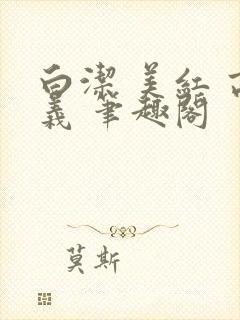 白潔 美红 高
義 筆趣阁
莫斯